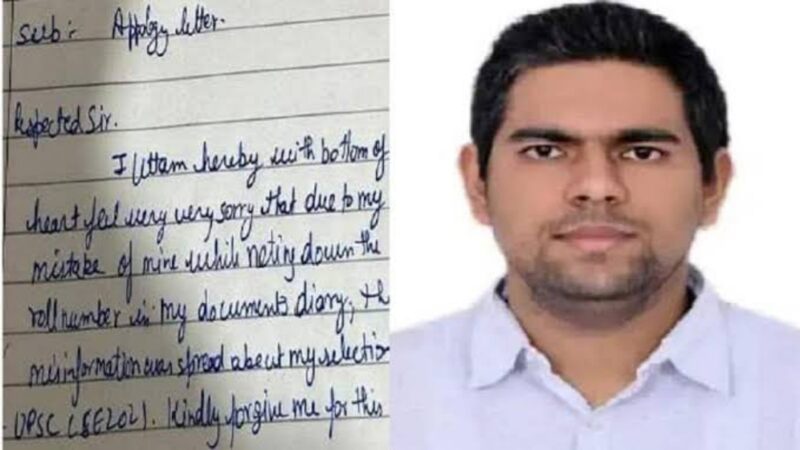 Sub:- Appology letter.
Respected Sir.
I Uttam hereby with bottom of
heart feel very very sorry that due to my
mistake of mine while noting down the
roll number in my documents diary, th
misinformation was spread about my selectio
UPSC (SE202). Kindly forgive me for this